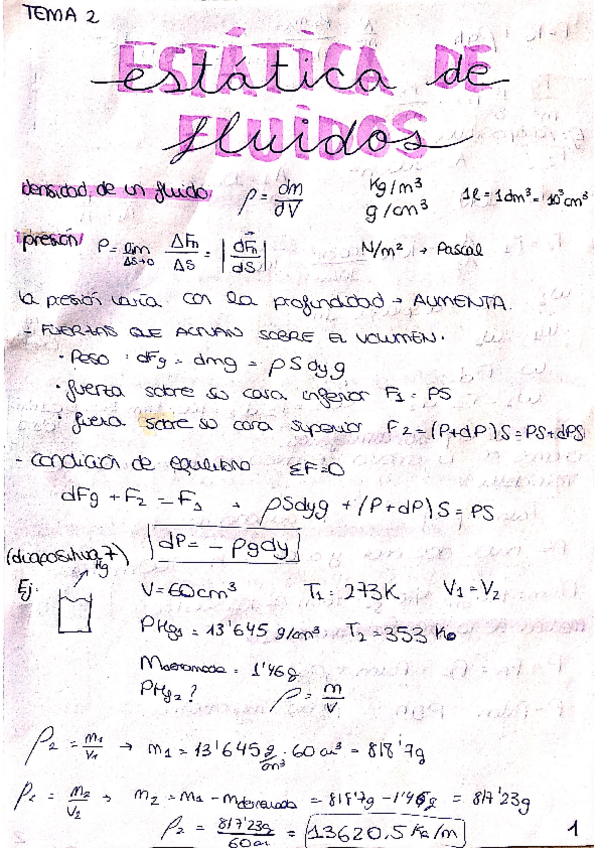 TEMA 2
ESTÁTICA DE
estática de
FLUIDOS
fluidos
densidad de un fluido ρ = dm/dV Kg/m³ g/cm³ 1ℓ = 1dm³ = 10³cm³
presión P = lim ΔS→0 ΔFn/ΔS = |dFn/dS| N/m² → Pascal
la presión varía con la profundidad → AUMENTA.
- FUERZAS QUE ACTUAN SOBRE EL VOLUMEN.
· Peso : dFg = dmg = ρSdyg
· fuerza sobre su cara inferior F1 = PS
· fuerza sobre su cara superior F2 = (P+dP)S = PS+dPS
- condición de equilibrio ΣF=0
dFg + F2 = F1 → ρSdyg + (P+dP)S = PS
dP = - ρgdy
(diapositiva 7)
Ej. Hg V = 60cm³ T1 = 273K V1 = V2
ρHg1 = 13'645 g/cm³ T2 = 353 K
Mderramada = 1'46g
ρHg2? ρ = m/V
ρ2 = m1/V1 → m1 = 13'645 g/cm³ · 60cm³ = 818'7g
ρ2 = m2/V2 → m2 = m1 - mderramada = 818'7g - 1'46g = 817'23g
ρ2 = 817'23g/60cm = 13620,5 Kg/m
1